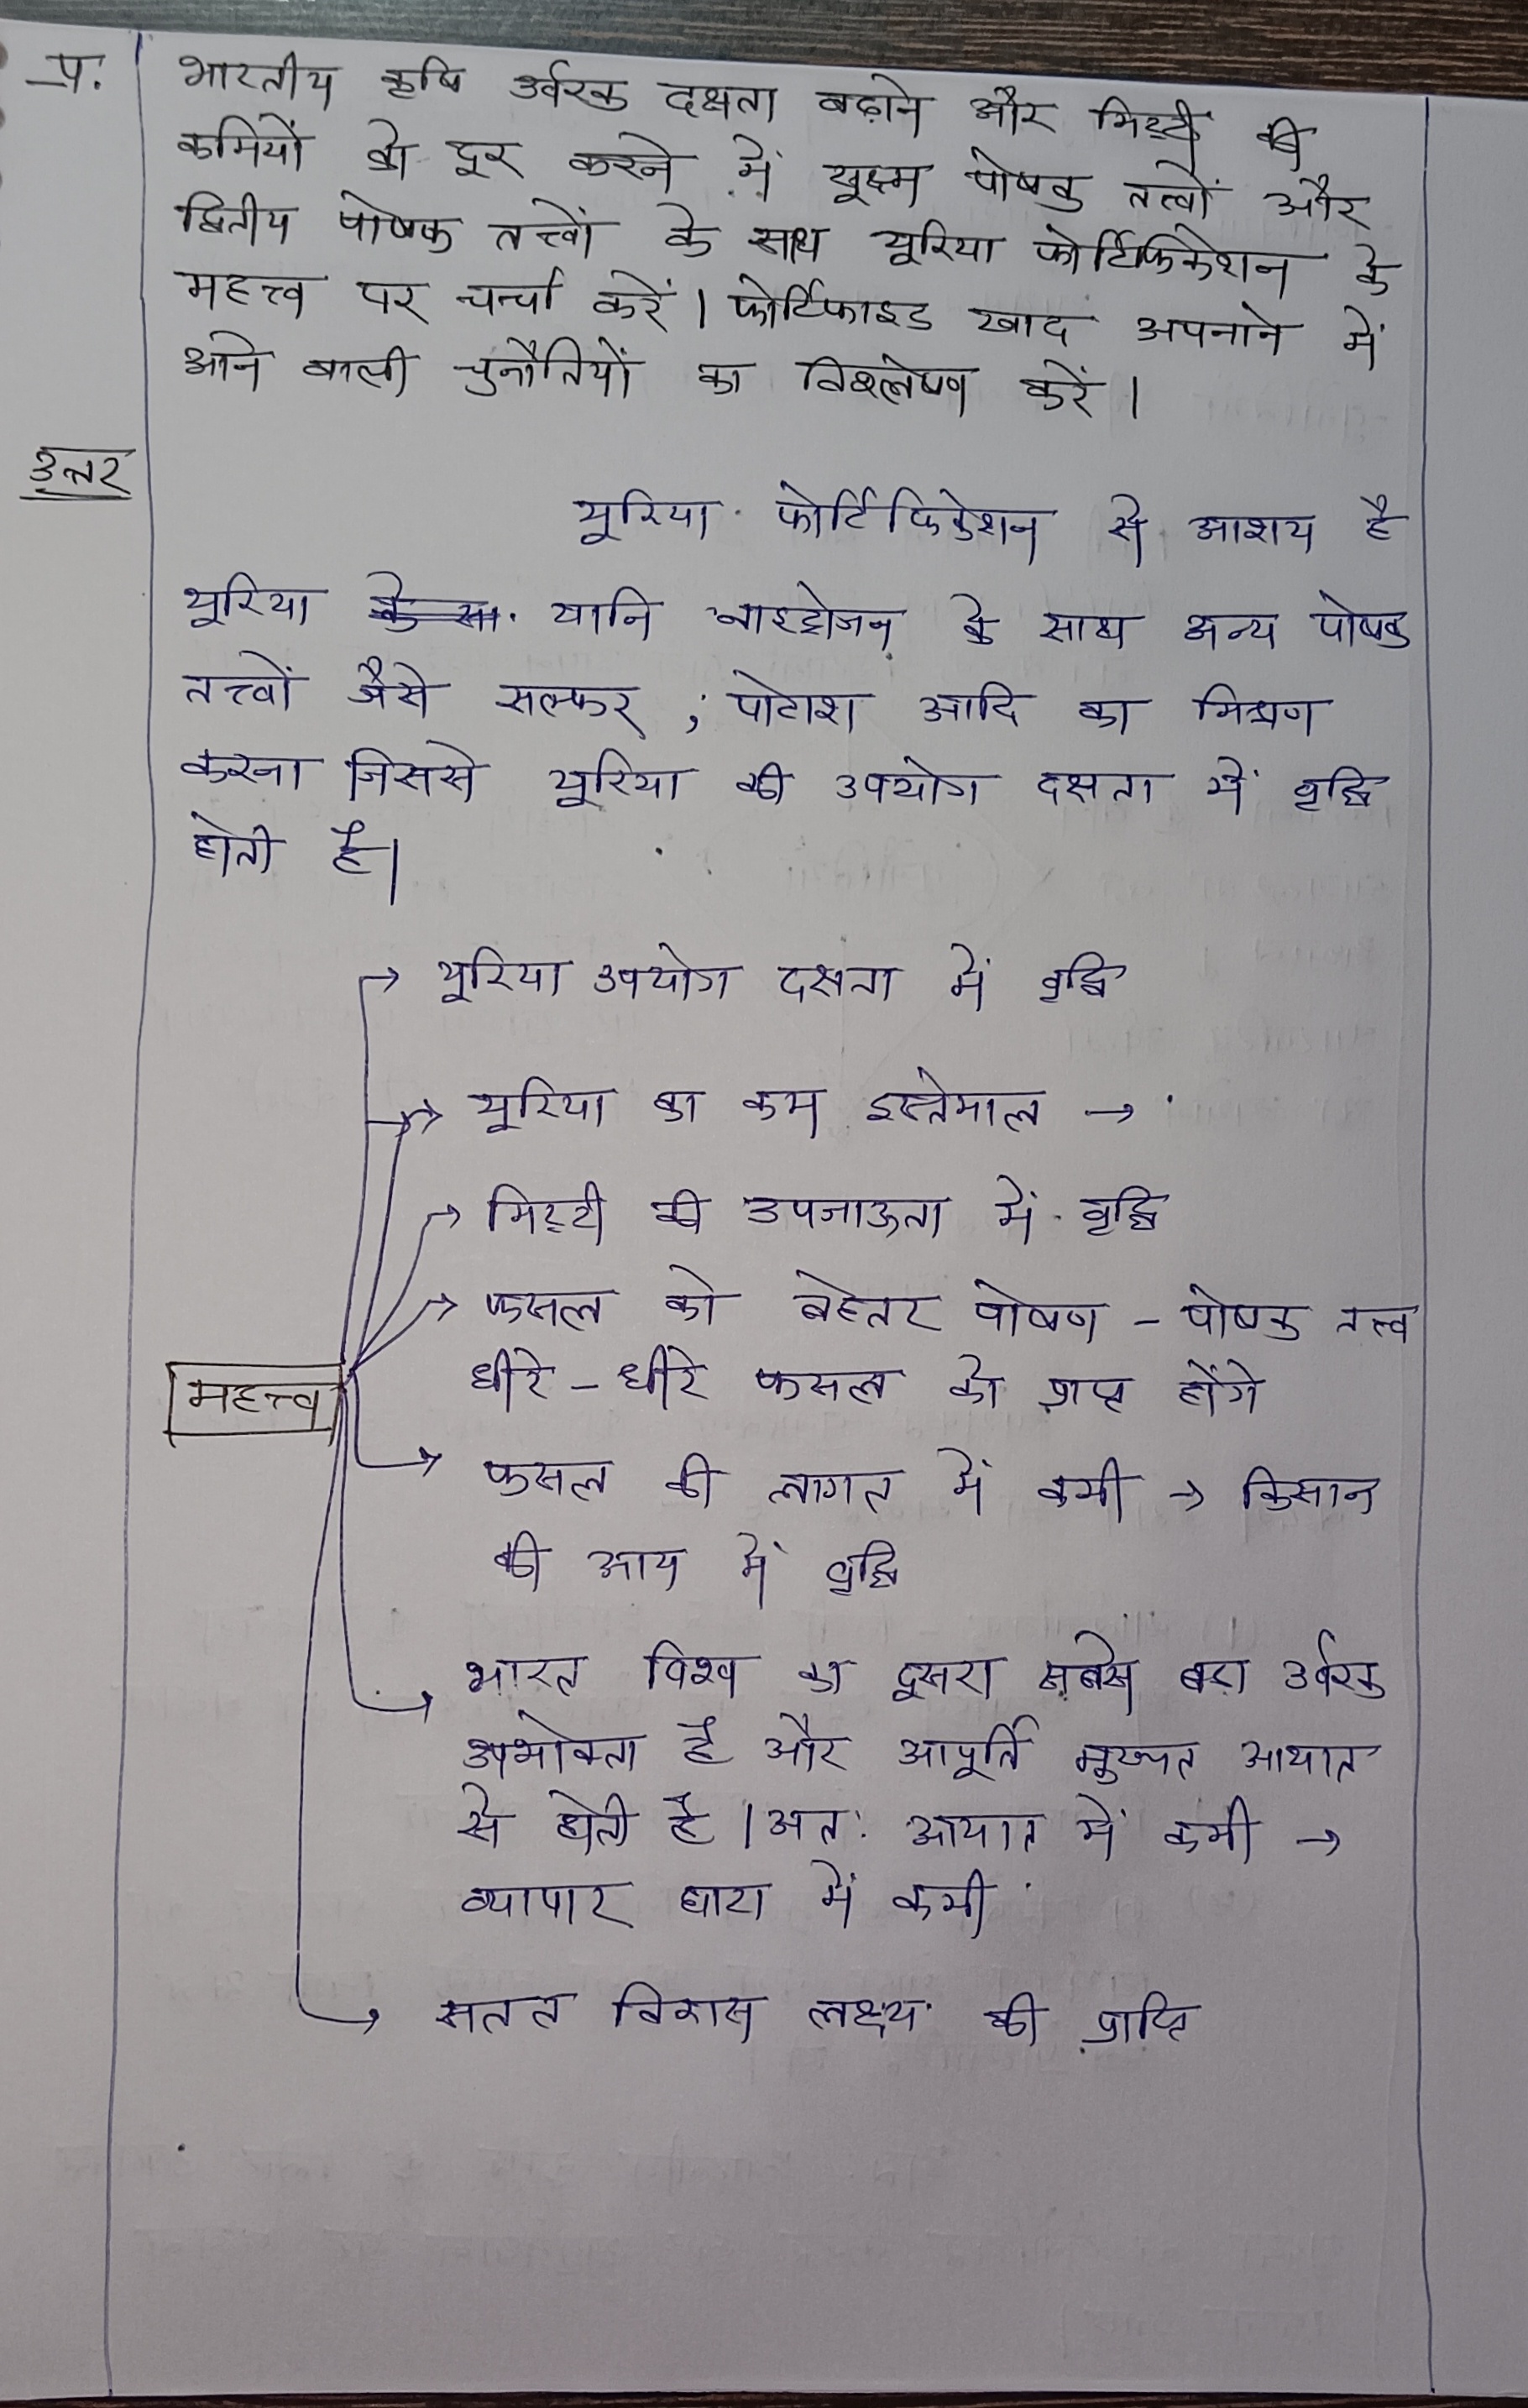 प्र.
भारतीय कृषि उर्वरक दक्षता बढ़ाने और मिट्टी की
कमियों को दूर करने में सूक्ष्म पोषक तत्वों और
द्वितीय पोषक तत्त्वों के साथ यूरिया फोर्टिफिकेशन के
महत्त्व पर चर्चा करें। फोर्टिफाइड खाद अपनाने में
आने वाली चुनौतियों का विश्लेषण करें।
उत्तर
यूरिया फोर्टिफिकेशन से आशय है
यूरिया यानि नाइट्रोजन के साथ अन्य पोषक
तत्त्वों जैसे सल्फर, पोटाश आदि का मिश्रण
करना जिससे यूरिया की उपयोग दक्षता में वृद्धि
होती है।
→ यूरिया उपयोग दक्षता में वृद्धि
→ यूरिया का कम इस्तेमाल →
→ मिट्टी की उपजाऊता में वृद्धि
→ फसल को बेहतर पोषण - पोषक तत्त्व
धीरे - धीरे फसल को प्राप्त होंगे
महत्त्व
→ फसल की लागत में कमी → किसान
की आय में वृद्धि
→ भारत विश्व का दूसरा सबसे बड़ा उर्वरक
उपभोक्ता है और आपूर्ति मुख्यत आयात
से होती है। अत: आयात में कमी →
व्यापार घाटा में कमी
→ सतत विकास लक्ष्य की प्राप्ति